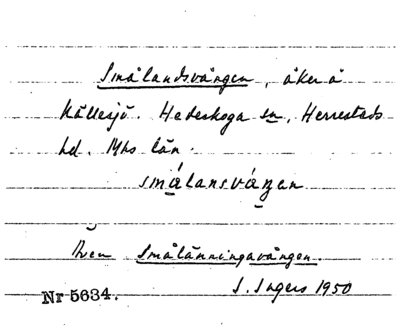 Smålandsvången, åker å
Källesjö. Hedeskoga sn, Herrestads
hd. Mhs län.
smálansváŋen
Även Smålänningavången.
Nr 5634.
I. Ingers 1950